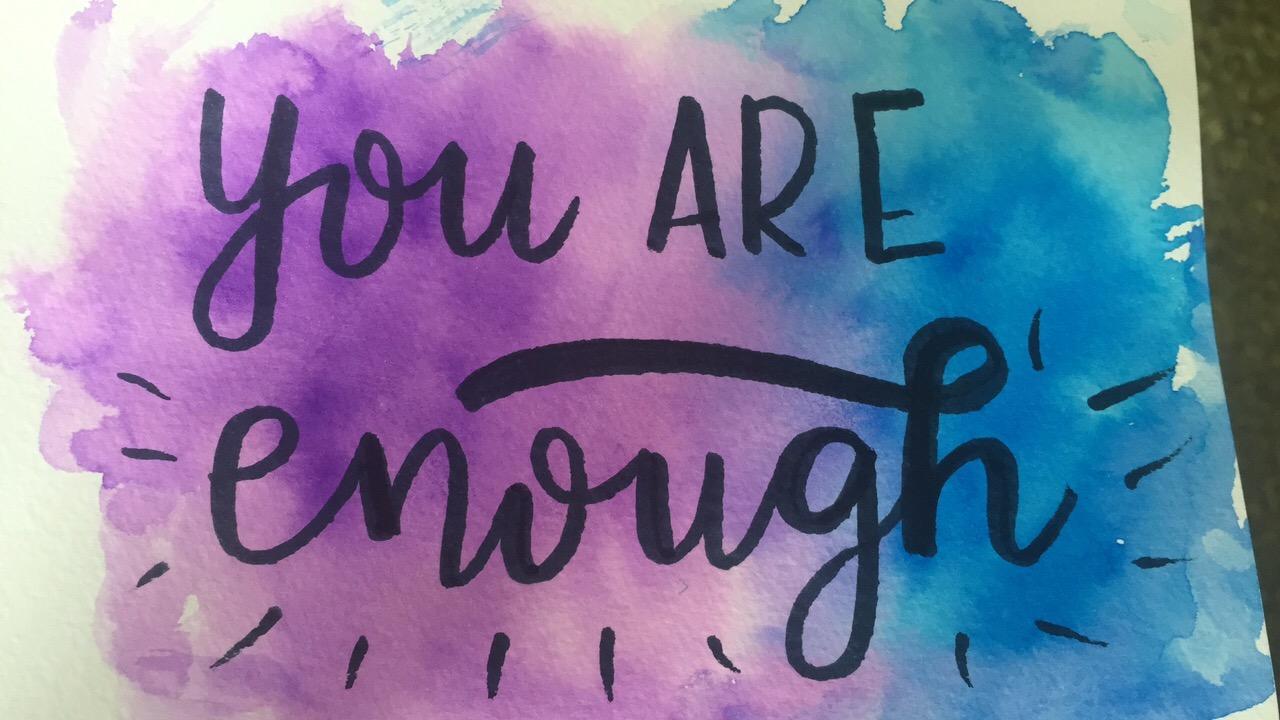 you ARE
enough